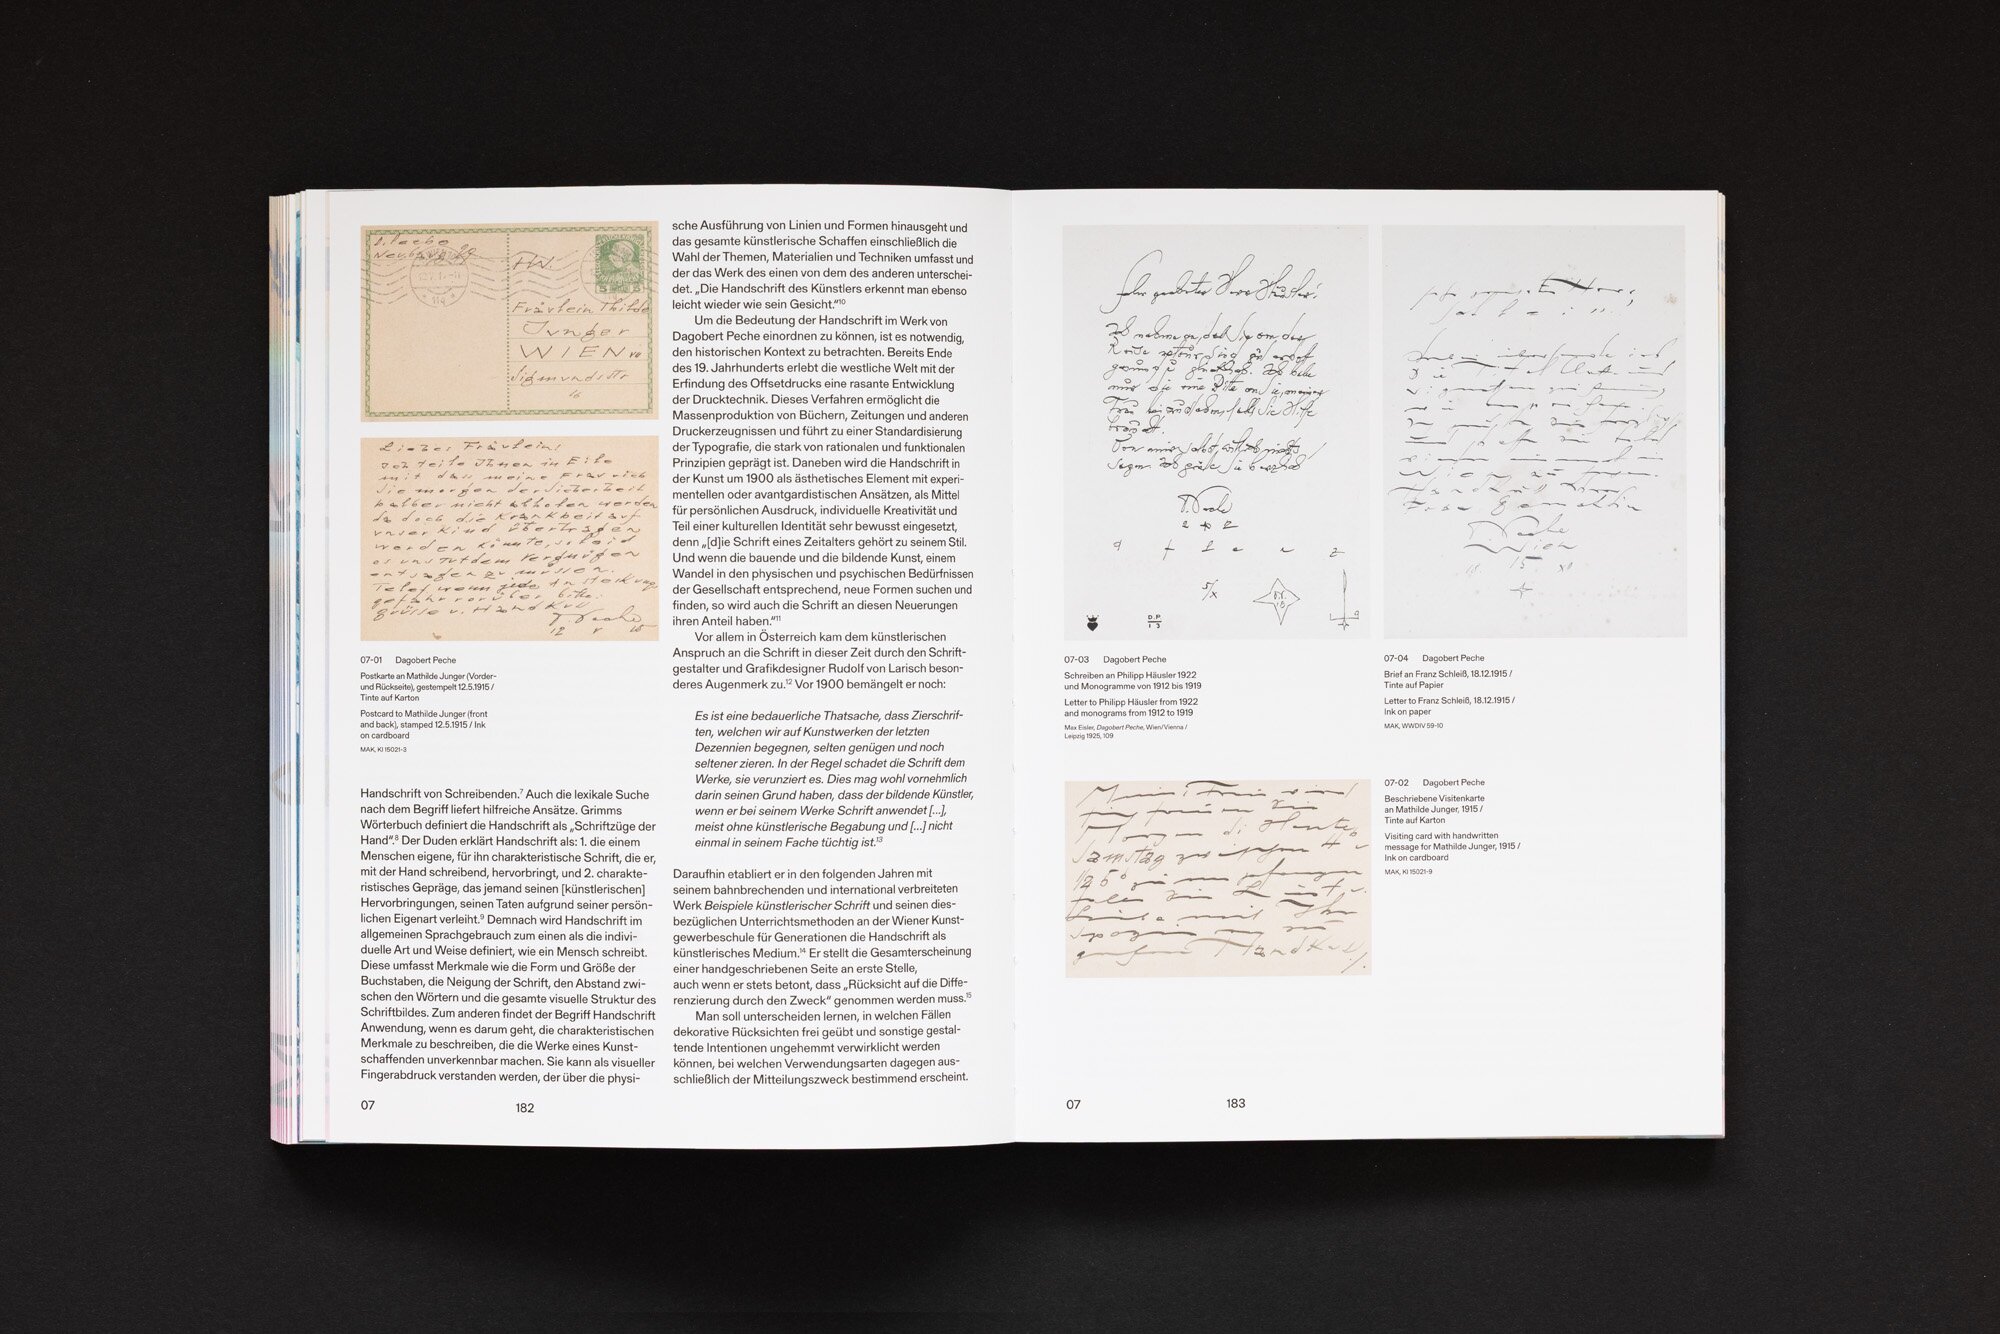 D. Peche
Neubaug. 29
P.W.
Fräulein Thilde
Junger
WIEN VII
Sigmundsstr
16
5 5
Lieber Fräulein!
ich teile Ihnen in Eile
mit dass meine Frau sich
Sie morgen der Sicherheit
halber nicht abholen werden
da doch die Krankheit auf
unser Kind übertragen
werden könnte, so leid
es uns tut dem Vergnügen
entsagen zu müssen.
Telef wenn jede Ansteckungs
gefahr vorüber bitte.
grüsse u. Handkuss
D. Peche
12 V 15
07-01 Dagobert Peche
Postkarte an Mathilde Junger (Vorder-
und Rückseite), gestempelt 12.5.1915 /
Tinte auf Karton
Postcard to Mathilde Junger (front
and back), stamped 12.5.1915 / Ink
on cardboard
MAK, KI 15021-3
Handschrift von Schreibenden.⁷ Auch die lexikale Suche
nach dem Begriff liefert hilfreiche Ansätze. Grimms
Wörterbuch definiert die Handschrift als „Schriftzüge der
Hand“.⁸ Der Duden erklärt Handschrift als: 1. die einem
Menschen eigene, für ihn charakteristische Schrift, die er,
mit der Hand schreibend, hervorbringt, und 2. charakte-
ristisches Gepräge, das jemand seinen [künstlerischen]
Hervorbringungen, seinen Taten aufgrund seiner persön-
lichen Eigenart verleiht.⁹ Demnach wird Handschrift im
allgemeinen Sprachgebrauch zum einen als die indivi-
duelle Art und Weise definiert, wie ein Mensch schreibt.
Diese umfasst Merkmale wie die Form und Größe der
Buchstaben, die Neigung der Schrift, den Abstand zwi-
schen den Wörtern und die gesamte visuelle Struktur des
Schriftbildes. Zum anderen findet der Begriff Handschrift
Anwendung, wenn es darum geht, die charakteristischen
Merkmale zu beschreiben, die die Werke eines Kunst-
schaffenden unverkennbar machen. Sie kann als visueller
Fingerabdruck verstanden werden, der über die physi-
sche Ausführung von Linien und Formen hinausgeht und
das gesamte künstlerische Schaffen einschließlich die
Wahl der Themen, Materialien und Techniken umfasst und
der das Werk des einen von dem des anderen unterschei-
det. „Die Handschrift des Künstlers erkennt man ebenso
leicht wieder wie sein Gesicht.“¹⁰
Um die Bedeutung der Handschrift im Werk von
Dagobert Peche einordnen zu können, ist es notwendig,
den historischen Kontext zu betrachten. Bereits Ende
des 19. Jahrhunderts erlebt die westliche Welt mit der
Erfindung des Offsetdrucks eine rasante Entwicklung
der Drucktechnik. Dieses Verfahren ermöglicht die
Massenproduktion von Büchern, Zeitungen und anderen
Druckerzeugnissen und führt zu einer Standardisierung
der Typografie, die stark von rationalen und funktionalen
Prinzipien geprägt ist. Daneben wird die Handschrift in
der Kunst um 1900 als ästhetisches Element mit experi-
mentellen oder avantgardistischen Ansätzen, als Mittel
für persönlichen Ausdruck, individuelle Kreativität und
Teil einer kulturellen Identität sehr bewusst eingesetzt,
denn „[d]ie Schrift eines Zeitalters gehört zu seinem Stil.
Und wenn die bauende und die bildende Kunst, einem
Wandel in den physischen und psychischen Bedürfnissen
der Gesellschaft entsprechend, neue Formen suchen und
finden, so wird auch die Schrift an diesen Neuerungen
ihren Anteil haben.“¹¹
Vor allem in Österreich kam dem künstlerischen
Anspruch an die Schrift in dieser Zeit durch den Schrift-
gestalter und Grafikdesigner Rudolf von Larisch beson-
deres Augenmerk zu.¹² Vor 1900 bemängelt er noch:
Es ist eine bedauerliche Thatsache, dass Zierschrif-
ten, welchen wir auf Kunstwerken der letzten
Dezennien begegnen, selten genügen und noch
seltener zieren. In der Regel schadet die Schrift dem
Werke, sie verunziert es. Dies mag wohl vornehmlich
darin seinen Grund haben, dass der bildende Künstler,
wenn er bei seinem Werke Schrift anwendet [...],
meist ohne künstlerische Begabung und [...] nicht
einmal in seinem Fache tüchtig ist.¹³
Daraufhin etabliert er in den folgenden Jahren mit
seinem bahnbrechenden und international verbreiteten
Werk Beispiele künstlerischer Schrift und seinen dies-
bezüglichen Unterrichtsmethoden an der Wiener Kunst-
gewerbeschule für Generationen die Handschrift als
künstlerisches Medium.¹⁴ Er stellt die Gesamterscheinung
einer handgeschriebenen Seite an erste Stelle,
auch wenn er stets betont, dass „Rücksicht auf die Diffe-
renzierung durch den Zweck“ genommen werden muss.¹⁵
Man soll unterscheiden lernen, in welchen Fällen
dekorative Rücksichten frei geübt und sonstige gestal-
tende Intentionen ungehemmt verwirklicht werden
können, bei welchen Verwendungsarten dagegen aus-
schließlich der Mitteilungszweck bestimmend erscheint.
07 182
Sehr geehrter Herr Häusler!
D. Peche
5/X
D.P.
13
07-03 Dagobert Peche
Schreiben an Philipp Häusler 1922
und Monogramme von 1912 bis 1919
Letter to Philipp Häusler from 1922
and monograms from 1912 to 1919
Max Eisler, Dagobert Peche, Wien/Vienna /
Leipzig 1925, 109
D. Peche
Wien
15
07-04 Dagobert Peche
Brief an Franz Schleiß, 18.12.1915 /
Tinte auf Papier
Letter to Franz Schleiß, 18.12.1915 /
Ink on paper
MAK, WWDIV 59-10
Samstag zwischen 4
Handkuss
07-02 Dagobert Peche
Beschriebene Visitenkarte
an Mathilde Junger, 1915 /
Tinte auf Karton
Visiting card with handwritten
message for Mathilde Junger, 1915 /
Ink on cardboard
MAK, KI 15021-9
07 183